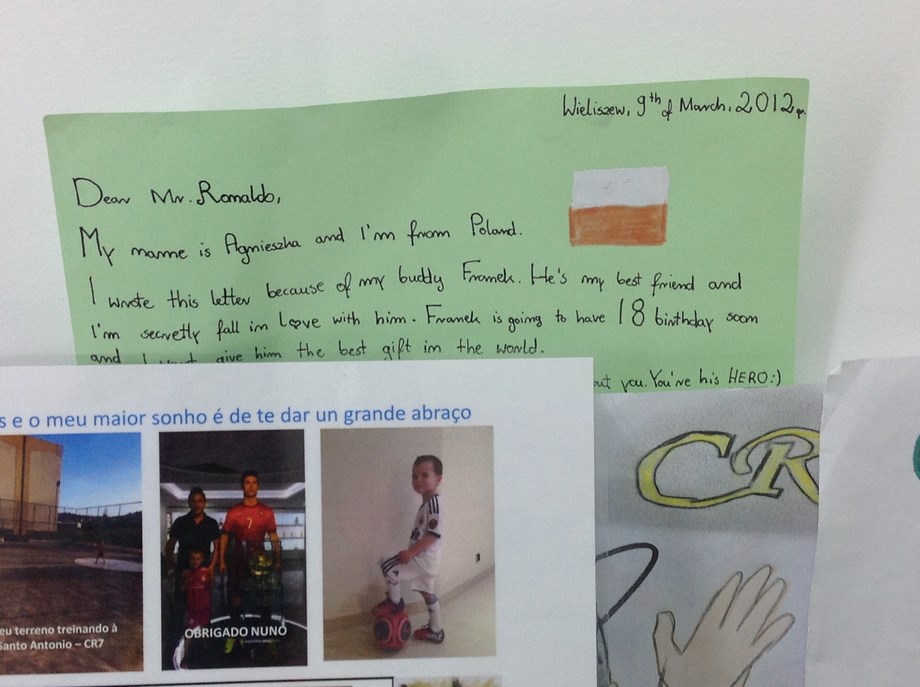 Wieliszew, 9th of March, 2012r.
Dear Mr. Ronaldo,
My name is Agnieszka and I'm from Poland.
I wrote this letter because of my buddy Franek. He's my best friend and
I'm secretly fall in love with him. Franek is going to have 18 birthday soon
and I want give him the best gift in the world.
out you. You're his HERO:)
s e o meu maior sonho é de te dar un grande abraço
eu terreno treinando à
Santo Antonio – CR7
7
OBRIGADO NUNO
CR